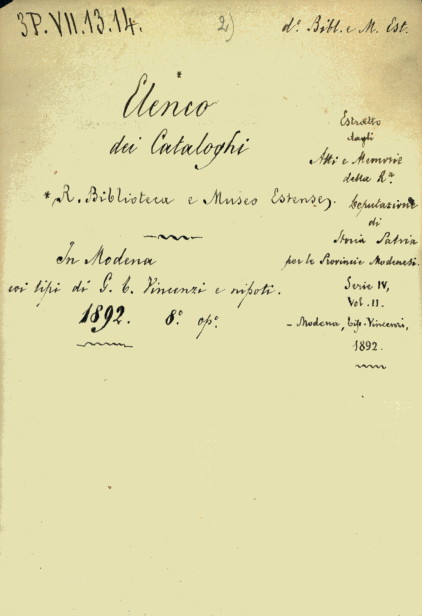 3P.VII.13.14.
2)
d.° Bibl. e M. Est.
*
Elenco
dei Cataloghi
* R. Biblioteca e Museo Estense).
In Modena
coi tipi di G. T. Vincenzi e nipoti.
1892. 8.° op.°
Estratto
dagli
Atti e Memorie
della R.ª
Deputazione
di
Storia Patria
per le Provincie Modenesi.
Serie IV,
Vol. II.
– Modena, Tip. Vincenzi,
1892.